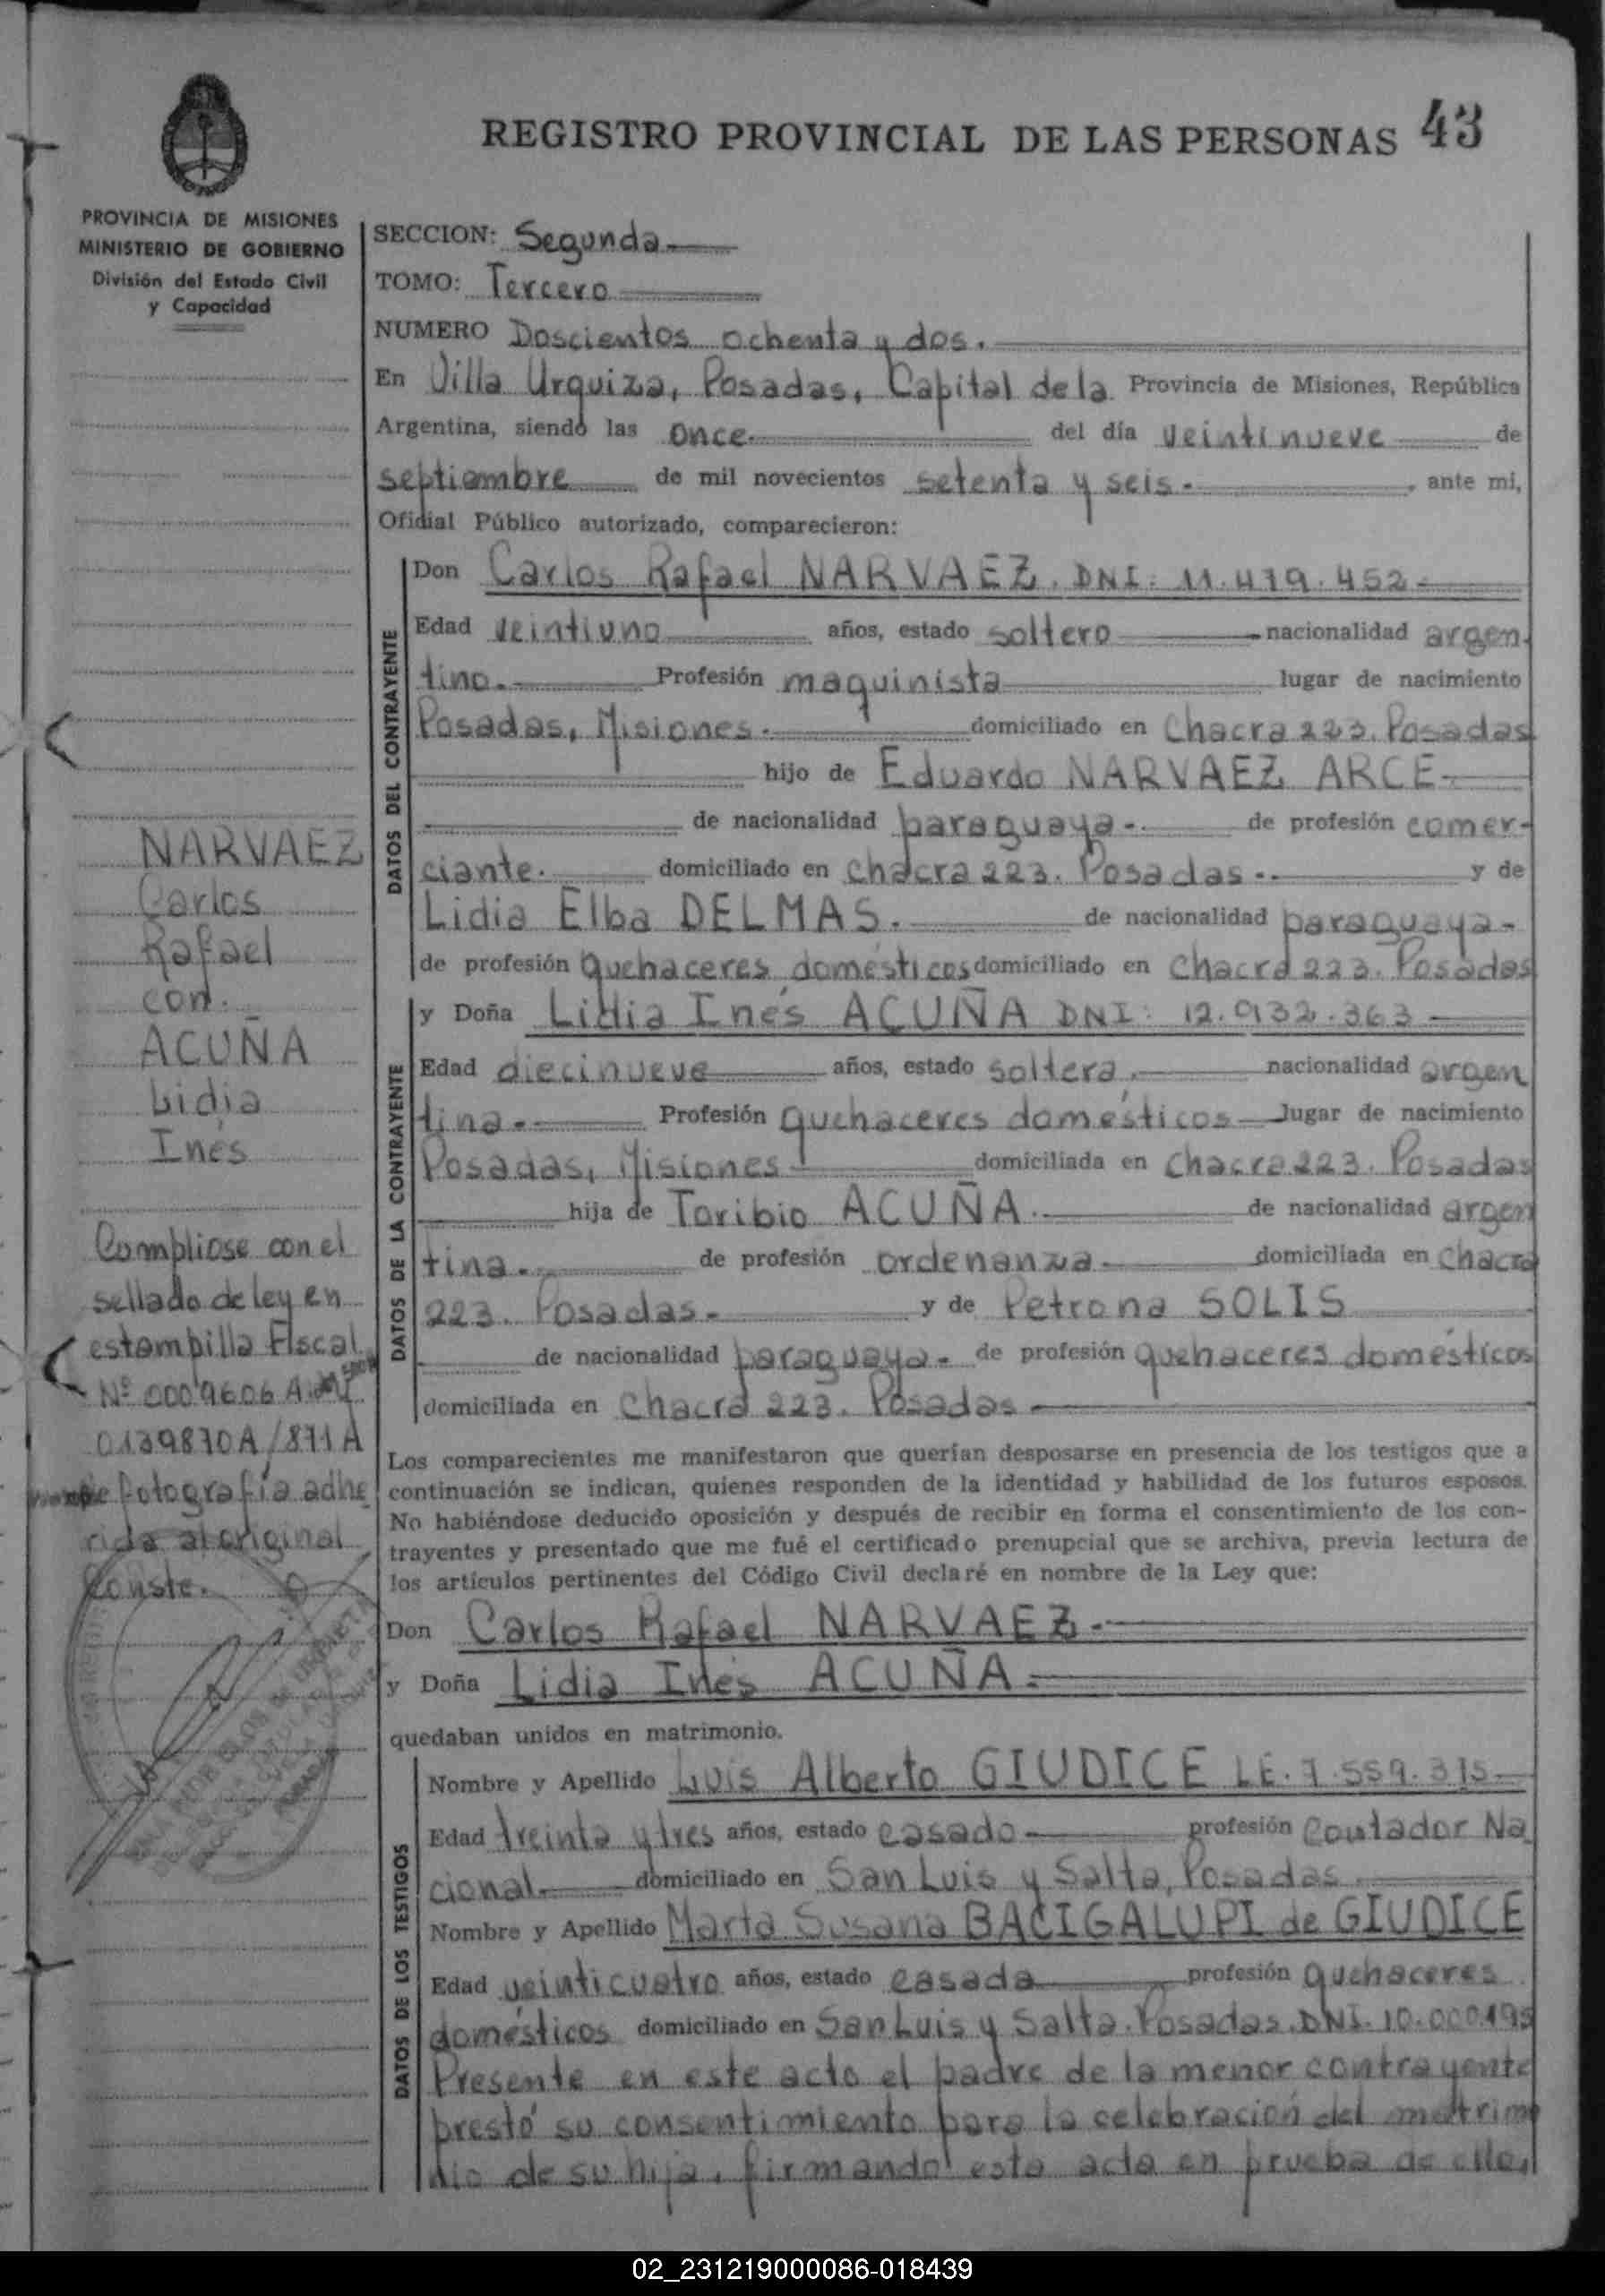 REGISTRO PROVINCIAL DE LAS PERSONAS 43
PROVINCIA DE MISIONES
MINISTERIO DE GOBIERNO
División del Estado Civil
y Capacidad
SECCION: Segunda
TOMO: Tercero
NUMERO Doscientos ochenta y dos.
En Villa Urquiza, Posadas, Capital de la Provincia de Misiones, República
Argentina, siendo las once. del día veintinueve de
septiembre de mil novecientos setenta y seis. , ante mi,
Oficial Público autorizado, comparecieron:
DATOS DEL CONTRAYENTE
Don Carlos Rafael NARVAEZ. DNI: 11.479.452-
Edad veintiuno años, estado soltero nacionalidad argen
tino. Profesión maquinista lugar de nacimiento
Posadas, Misiones. domiciliado en Chacra 223. Posadas
hijo de Eduardo NARVAEZ ARCE
de nacionalidad paraguaya-. de profesión comer-
ciante. domiciliado en chacra 223. Posadas-. y de
Lidia Elba DELMAS. de nacionalidad paraguaya-
de profesión quehaceres domésticos domiciliado en Chacra 223. Posadas
DATOS DE LA CONTRAYENTE
y Doña Lidia Inés ACUÑA DNI: 12.932.363
Edad diecinueve años, estado soltera. nacionalidad argen
tina. Profesión quehaceres domésticos lugar de nacimiento
Posadas, Misiones domiciliada en Chacra 223. Posadas
hija de Toribio ACUÑA. de nacionalidad argen
tina. de profesión ordenanza domiciliada en Chacra
223. Posadas. y de Petrona SOLIS
de nacionalidad paraguaya. de profesión quehaceres domésticos
domiciliada en Chacra 223. Posadas
Los comparecientes me manifestaron que querían desposarse en presencia de los testigos que a
continuación se indican, quienes responden de la identidad y habilidad de los futuros esposos.
No habiéndose deducido oposición y después de recibir en forma el consentimiento de los con-
trayentes y presentado que me fué el certificado prenupcial que se archiva, previa lectura de
los artículos pertinentes del Código Civil declaré en nombre de la Ley que:
Don Carlos Rafael NARVAEZ.
y Doña Lidia Inés ACUÑA.
quedaban unidos en matrimonio.
DATOS DE LOS TESTIGOS
Nombre y Apellido Luis Alberto GIUDICE LE. 7.559.315
Edad treinta y tres años, estado casado profesión Contador Na
cional. domiciliado en San Luis y Salta, Posadas
Nombre y Apellido Marta Susana BACIGALUPI de GIUDICE
Edad veinticuatro años, estado casada profesión quehaceres
domésticos domiciliado en San Luis y Salta. Posadas. DNI. 10.000.195
Presente en este acto el padre de la menor contrayente
prestó su consentimiento para la celebración del matrimo
nio de su hija, firmando esta acta en prueba de ello,
NARVAEZ
Carlos
Rafael
con.
ACUÑA
Lidia
Inés
Cumpliose con el
sellado de ley en
estampilla Fiscal
Nº 0009606 A
0139870A/871A
fotografía adhe
rida al original
Conste.
02_231219000086-018439